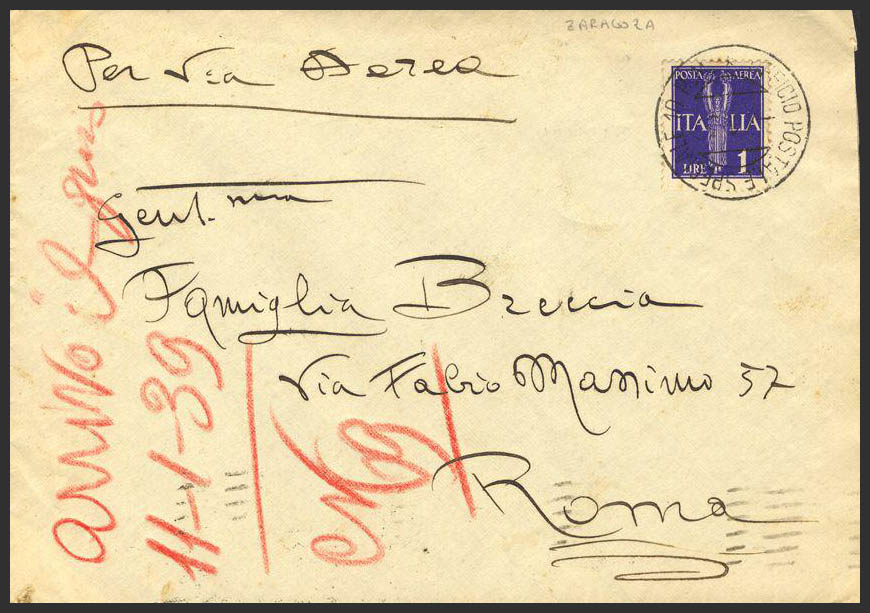 ZARAGOZA
Per Via Aerea
POSTA AEREA
ITALIA
LIRE 1
UFFICIO POSTALE SPE
Gent.ma
Famiglia Breccia
Via Fabio Massimo 57
Roma
arrivo il giorno
11-1-39